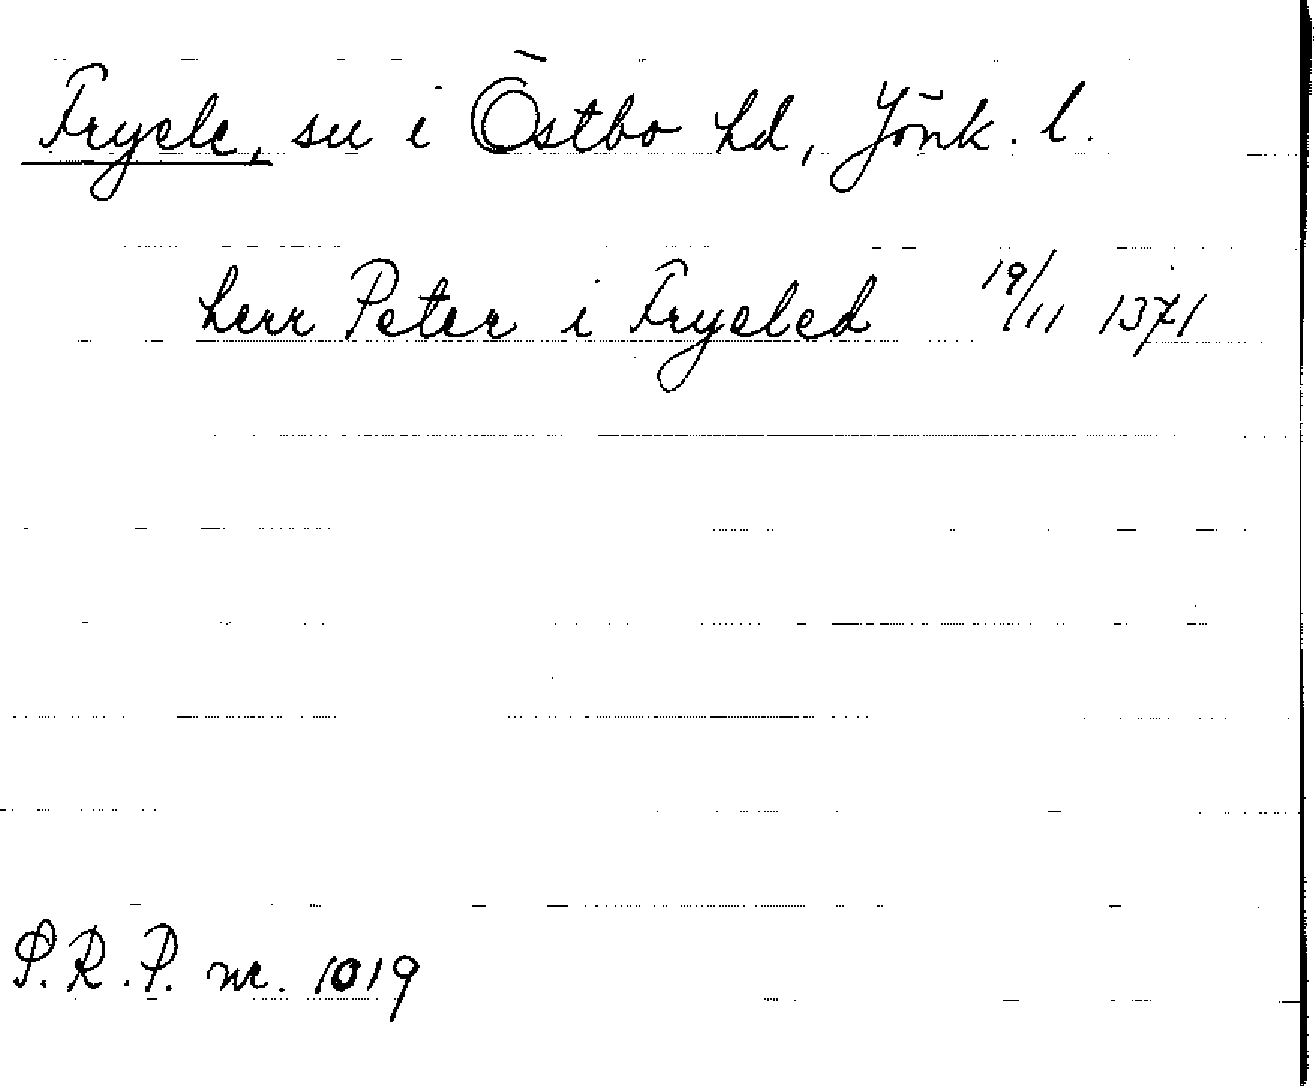 Fryele, sn i Östbo hd, Jönk. l.
herr Peter i Fryeled 19/11 1371
S.R.P. nr. 1019